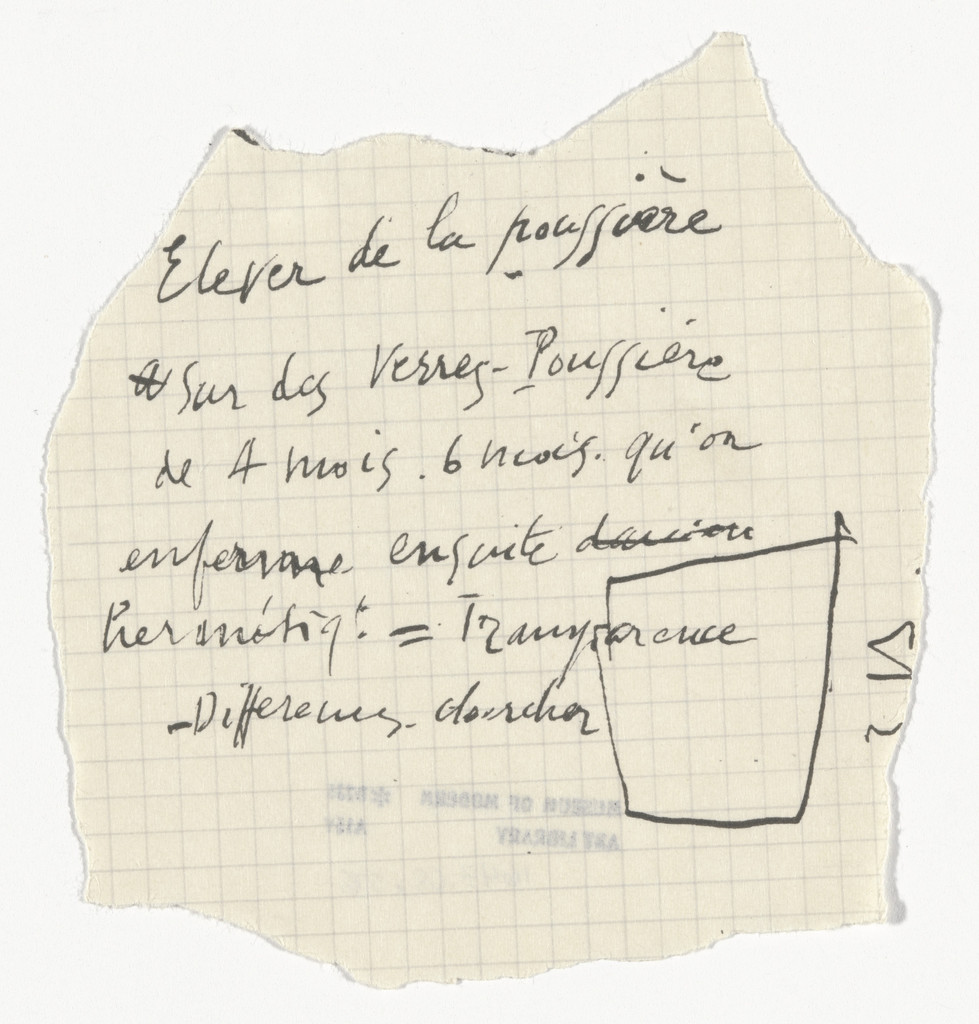 Elever de la poussière
Sur des Verres-Poussière
de 4 mois. 6 mois. qu'on
enferme ensuite
hermétiqt. = Transparence
- Differences. chercher
MUSEUM OF MODERN
ART LIBRARY